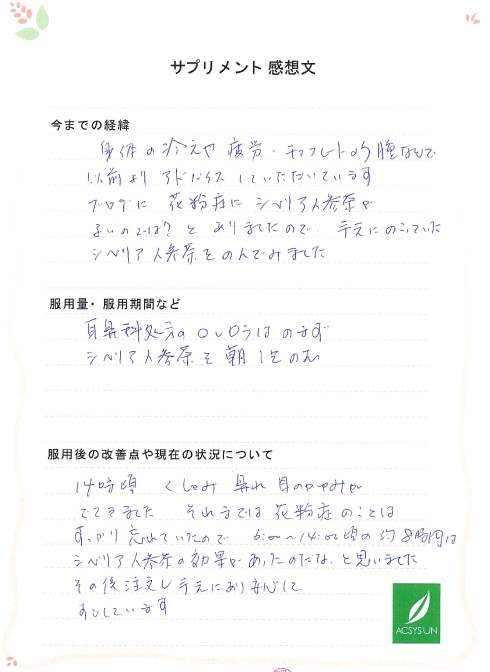 サプリメント 感想文
今までの経緯
身体の冷えや 疲労・チョコレートのう腫などで
以前より アドバイス していただいています
ブログに 花粉症に シベリア人参茶が
よいのでは? と ありましたので、手元にのこっていた
シベリア人参茶をのんでみました
服用量・服用期間など
耳鼻科処方の は のまず
シベリア人参茶を 朝 1包のむ
服用後の改善点や現在の状況について
14時頃 くしゃみ 鼻水 目のかゆみが
でてきました それまでは 花粉症のことは
すっかり忘れていたので 6:00〜14:00頃の 約8時間は
シベリア人参茶の効果があったのだな、と思いました
その後注文し 手元にあり 安心して
すごしています
ACSYSUN